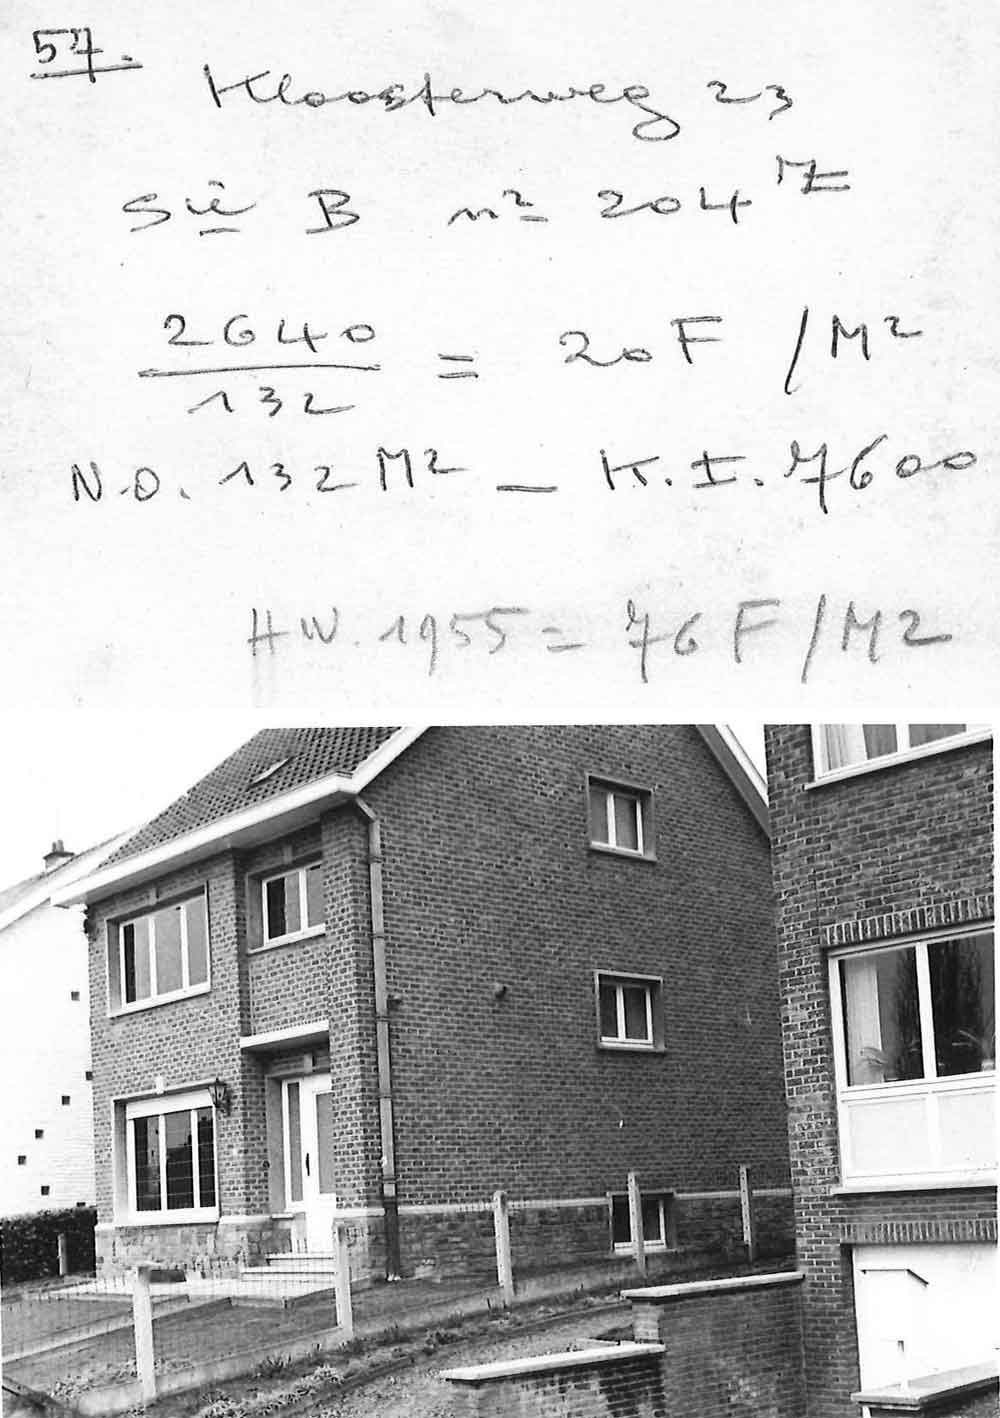 57.
Kloosterweg 23
Sie B nº 204 Z
2640
132
= 20 F / M2
N.O. 132 M2 - K.I. 7600
HW. 1955 = 76 F / M2